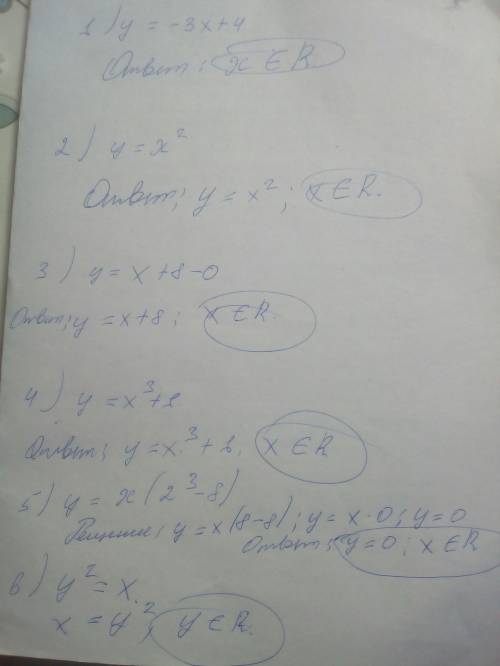 1) y = -3x+4
Ответ: x ∈ R.
2) y = x²
Ответ; y = x²; x ∈ R.
3) y = x+8-0
Ответ; y = x+8; x ∈ R.
4) y = x³+1
Ответ; y = x³+1, x ∈ R
5) y = x(2³-8)
Решение; y = x(8-8); y = x·0; y=0
Ответ; y=0; x ∈ R
6) y² = x.
x = y², y ∈ R.